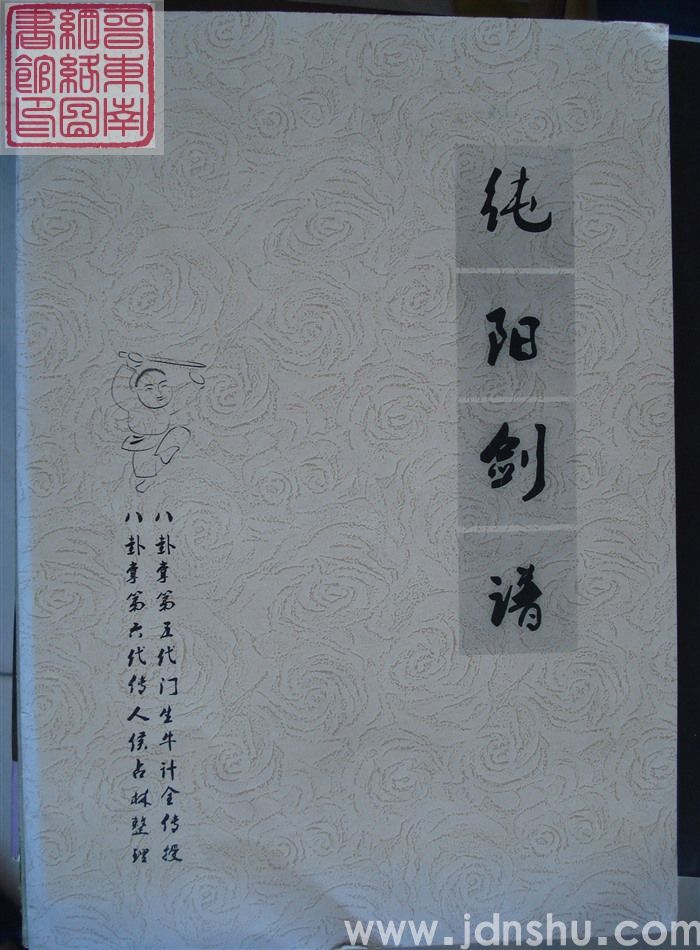 晋东南
網絡圖
書館印
纯阳剑谱
八卦掌第五代门生牛计全传授
八卦掌第六代传人侯占林整理
www.jdnshu.com